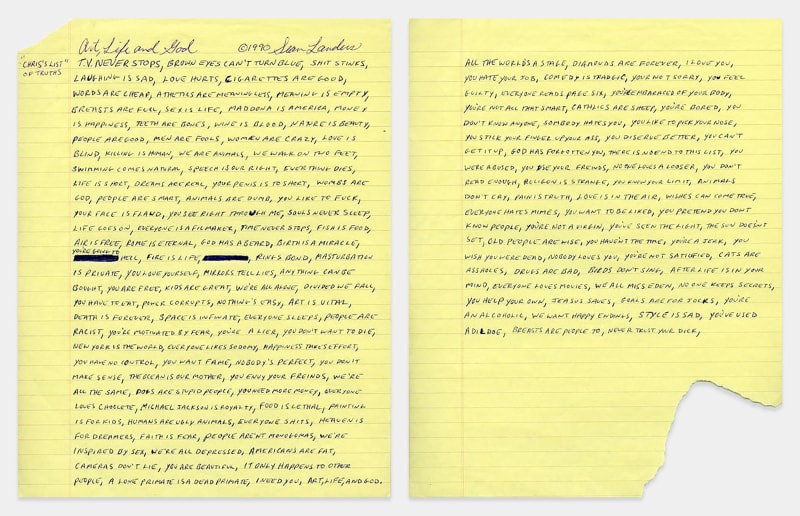 Art, Life and God ©1990 Sean Landers
"CHRIS'S LIST"
OF TRUTHS
T.V. NEVER STOPS, BROWN EYES CAN'T TURN BLUE, SHIT STINKS,
LAUGHING IS SAD, LOVE HURTS, CIGARETTES ARE GOOD,
WORDS ARE CHEAP, ATHETICS ARE MEANINGLESS, MEANING IS EMPTY,
BREASTS ARE FULL, SEX IS LIFE, MADDONA IS AMERICA, MONEY
IS HAPPINESS, TEETH ARE BONES, WINE IS BLOOD, NATURE IS BEAUTY,
PEOPLE ARE GOOD, MEN ARE FOOLS, WOMEN ARE CRAZY, LOVE IS
BLIND, KILLING IS HUMAN, WE ARE ANIMALS, WE WALK ON TWO FEET,
SWIMMING COMES NATURAL, SPEECH IS OUR RIGHT, EVERYTHING DIES,
LIFE IS SHORT, DREAMS ARE REAL, YOUR PENIS IS TO SHORT, WOMBS ARE
GOD, PEOPLE ARE SMART, ANIMALS ARE DUMB, YOU LIKE TO FUCK,
YOUR FACE IS FLAWD, YOU SEE RIGHT THROUGH ME, SOULS NEVER SLEEP,
LIFE GOES ON, EVERYONE IS A FILMAKER, TIME NEVER STOPS, FISH IS FOOD,
AIR IS FREE, ROME IS ETERNAL, GOD HAS A BEARD, BIRTH IS A MIRACLE,
YOU'RE GOING TO
HELL, FIRE IS LIFE, RINGS BOND, MASTURBATION
IS PRIVATE, YOU LOVE YOURSELF, MIRRORS TELL LIES, ANYTHING CAN BE
BOUGHT, YOU ARE FREE, KIDS ARE GREAT, WE'RE ALL ALONE, DIVIDED WE FALL,
YOU HAVE TO EAT, POWER CORRUPTS, NOTHING'S EASY, ART IS VITAL,
DEATH IS FOREVER, SPACE IS INFINATE, EVERYONE SLEEPS, PEOPLE ARE
RACIST, YOU'RE MOTIVATED BY FEAR, YOU'RE A LIER, YOU DON'T WANT TO DIE,
NEW YORK IS THE WORLD, EVERYONE LIKES SODOMY, HAPPINESS TAKES EFFORT,
YOU HAVE NO CONTROL, YOU WANT FAME, NOBODY'S PERFECT, YOU DON'T
MAKE SENSE, THE OCEAN IS OUR MOTHER, YOU ENVY YOUR FREINDS, WE'RE
ALL THE SAME, DOGS ARE STUPID PEOPLE, YOU NEED MORE MONEY, EVERYONE
LOVES CHOCLETE, MICHAEL JACKSON IS ROYALTY, FOOD IS LETHAL, PAINTING
IS FOR KIDS, HUMANS ARE UGLY ANIMALS, EVERYONE SHITS, HEAVEN IS
FOR DREAMERS, FAITH IS FEAR, PEOPLE AREN'T MONOGEMAS, WE'RE
INSPIRED BY SEX, WE'RE ALL DEPRESSED, AMERICANS ARE FAT,
CAMERAS DON'T LIE, YOU ARE BEAUTIFUL, IT ONLY HAPPENS TO OTHER
PEOPLE, A LONE PRIMATE IS A DEAD PRIMATE, I NEED YOU, ART, LIFE, AND GOD.
ALL THE WORLDS A STAGE, DIAMONDS ARE FOREVER, I LOVE YOU,
YOU HATE YOUR JOB, COMEDY IS TRADGIC, YOUR NOT SORRY, YOU FEEL
GUILTY, EVERYONE READS PAGE SIX, YOU'RE EMBARACED OF YOUR BODY,
YOU'RE NOT ALL THAT SMART, CATHLICS ARE SHEEP, YOU'RE BORED, YOU
DON'T KNOW ANYONE, SOMBODY HATES YOU, YOU LIKE TO PICK YOUR NOSE,
YOU STICK YOUR FINGER UP YOUR ASS, YOU DISERVE BETTER, YOU CAN'T
GET IT UP, GOD HAS FORGOTTEN YOU, THERE IS NO END TO THIS LIST, YOU
WERE ABUSED, YOU USE YOUR FREINDS, NO ONE LOVES A LOOSER, YOU DON'T
READ ENOUGH, RELIGON IS STRANGE, YOU KNOW YOUR LIMIT, ANIMALS
DON'T CRY, PAIN IS TRUTH, LOVE IS IN THE AIR, WISHES CAN COME TRUE,
EVERYONE HATES MIMES, YOU WANT TO BE LIKED, YOU PRETEND YOU DON'T
KNOW PEOPLE, YOU'RE NOT A VIRGIN, YOU'VE SEEN THE LIGHT, THE SUN DOESN'T
SET, OLD PEOPLE ARE WISE, YOU HAVEN'T THE TIME, YOU'RE A JERK, YOU
WISH YOU WERE DEAD, NOBODY LOVES YOU, YOU'RE NOT SATISFIED, CATS ARE
ASSHOLES, DRUGS ARE BAD, BIRDS DON'T SING, AFTER LIFE IS IN YOUR
MIND, EVERYONE LOVES MOVIES, WE ALL MISS EDEN, NO ONE KEEPS SECRETS,
YOU HELP YOUR OWN, JEASUS SAVES, GOALS ARE FOR JOCKS, YOU'RE
AN ALCOHOLIC, WE WANT HAPPY ENDINGS, STYLE IS SAD, YOU'VE USED
A DILDOE, BREASTS ARE PEOPLE TO, NEVER TRUST YOUR DICK,